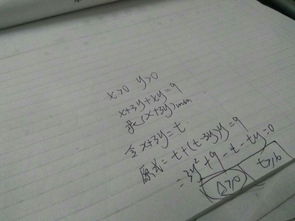 x>0 y>0
x+3y+xy=9
求(x+3y)min
令x+3y=t
原式=t+(t-3y)y=9
=3y²+9-t-ty=0
Δ≥0